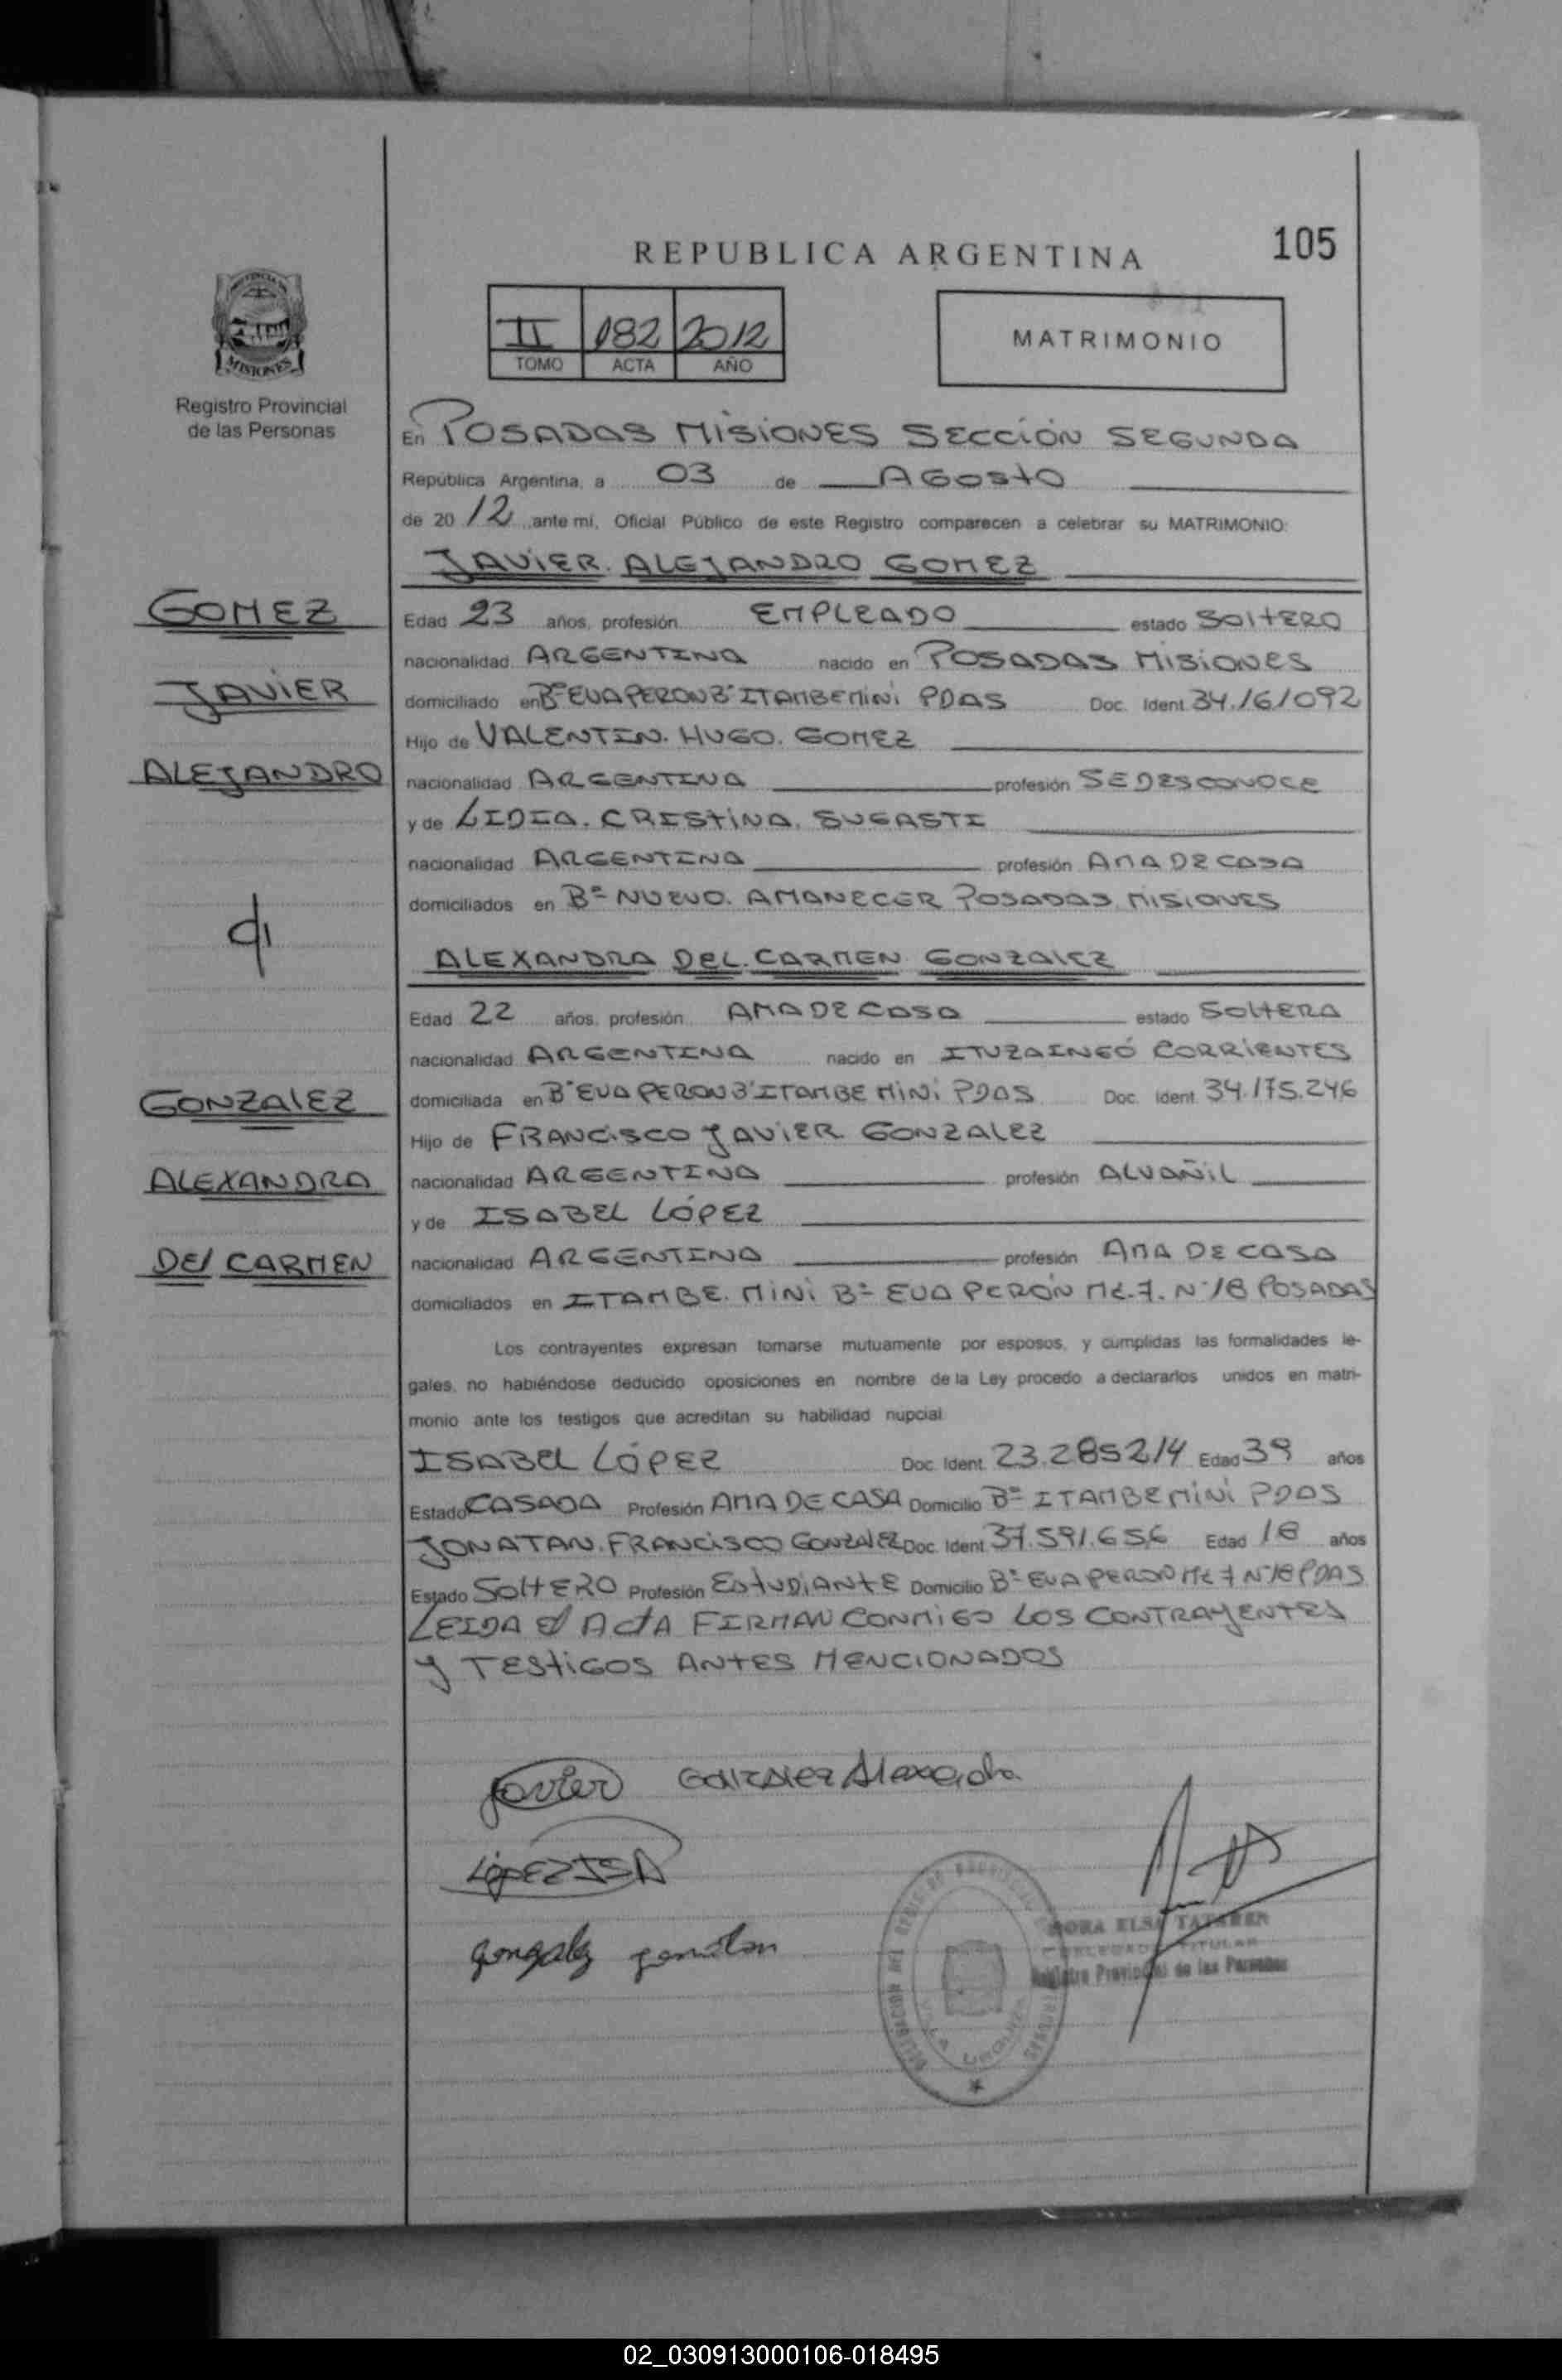 105
REPUBLICA ARGENTINA
II 082 2012
TOMO ACTA AÑO
MATRIMONIO
MISIONES
Registro Provincial
de las Personas
En POSADAS MISIONES SECCIÓN SEGUNDA
República Argentina, a 03 de AGOSTO
de 2012 ante mi, Oficial Público de este Registro comparecen a celebrar su MATRIMONIO:
JAVIER. ALEJANDRO GOMEZ
GOMEZ
Edad 23 años, profesión EMPLEADO estado SOLTERO
nacionalidad ARGENTINA nacido en POSADAS MISIONES
JAVIER
domiciliado en Bº EVA PERON Bº ITAMBE MINI PDAS Doc. Ident. 34.161092
Hijo de VALENTIN. HUGO. GOMEZ
ALEJANDRO
nacionalidad ARGENTINA profesión SE DESCONOCE
y de LIDIA. CRISTINA. SUGASTI
nacionalidad ARGENTINA profesión AMA DE CASA
domiciliados en Bº NUEVO. AMANECER POSADAS MISIONES
ALEXANDRA DEL. CARMEN GONZALEZ
Edad 22 años, profesión AMA DE CASA estado SOLTERA
nacionalidad ARGENTINA nacido en ITUZAINGÓ CORRIENTES
GONZALEZ
domiciliada en Bº EVA PERON Bº ITAMBE MINI PDAS Doc. Ident. 34.175.246
Hijo de FRANCISCO JAVIER GONZALEZ
ALEXANDRA
nacionalidad ARGENTINA profesión ALVAÑIL
y de ISABEL LÓPEZ
DEL CARMEN
nacionalidad ARGENTINA profesión AMA DE CASA
domiciliados en ITAMBE. MINI Bº EVA PERÓN MZ.7. Nº18 POSADAS
Los contrayentes expresan tomarse mutuamente por esposos, y cumplidas las formalidades le-
gales, no habiéndose deducido oposiciones en nombre de la Ley procedo a declararlos unidos en matri-
monio ante los testigos que acreditan su habilidad nupcial
ISABEL LÓPEZ Doc. Ident. 23.285214 Edad 39 años
Estado CASADA Profesión AMA DE CASA Domicilio Bº ITAMBE MINI PDAS
JONATAN. FRANCISCO GONZALEZ Doc. Ident. 37.591.656 Edad 18 años
Estado SOLTERO Profesión ESTUDIANTE Domicilio Bº EVA PERON MZ 7 Nº18 PDAS
LEIDA El ACTA FIRMAN CONMIGO LOS CONTRAYENTES
y TESTIGOS ANTES MENCIONADOS
Javier Gonzalez Alexandra
LópEZ ISA
gonzalez jonatan
ELSA
DELEGADA TITULAR
Registro Provincial de las Personas
02_030913000106-018495